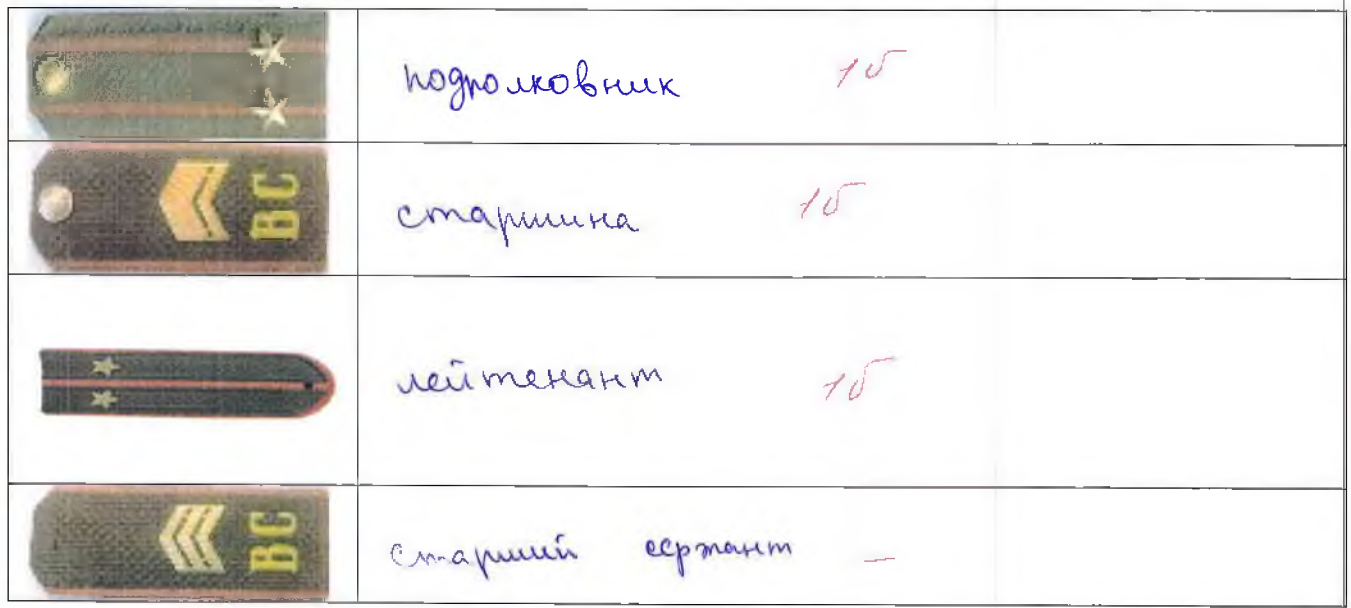 подполковник 1б
ВС
старшина 1б
лейтенант 1б
ВС
старший сержант —